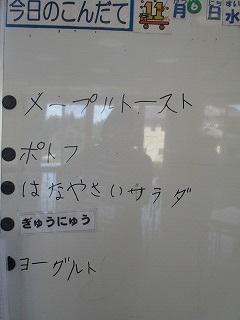 今日のこんだて 11月6日水
メープルトースト
ポトフ
はなやさいサラダ
ぎゅうにゅう
ヨーグルト